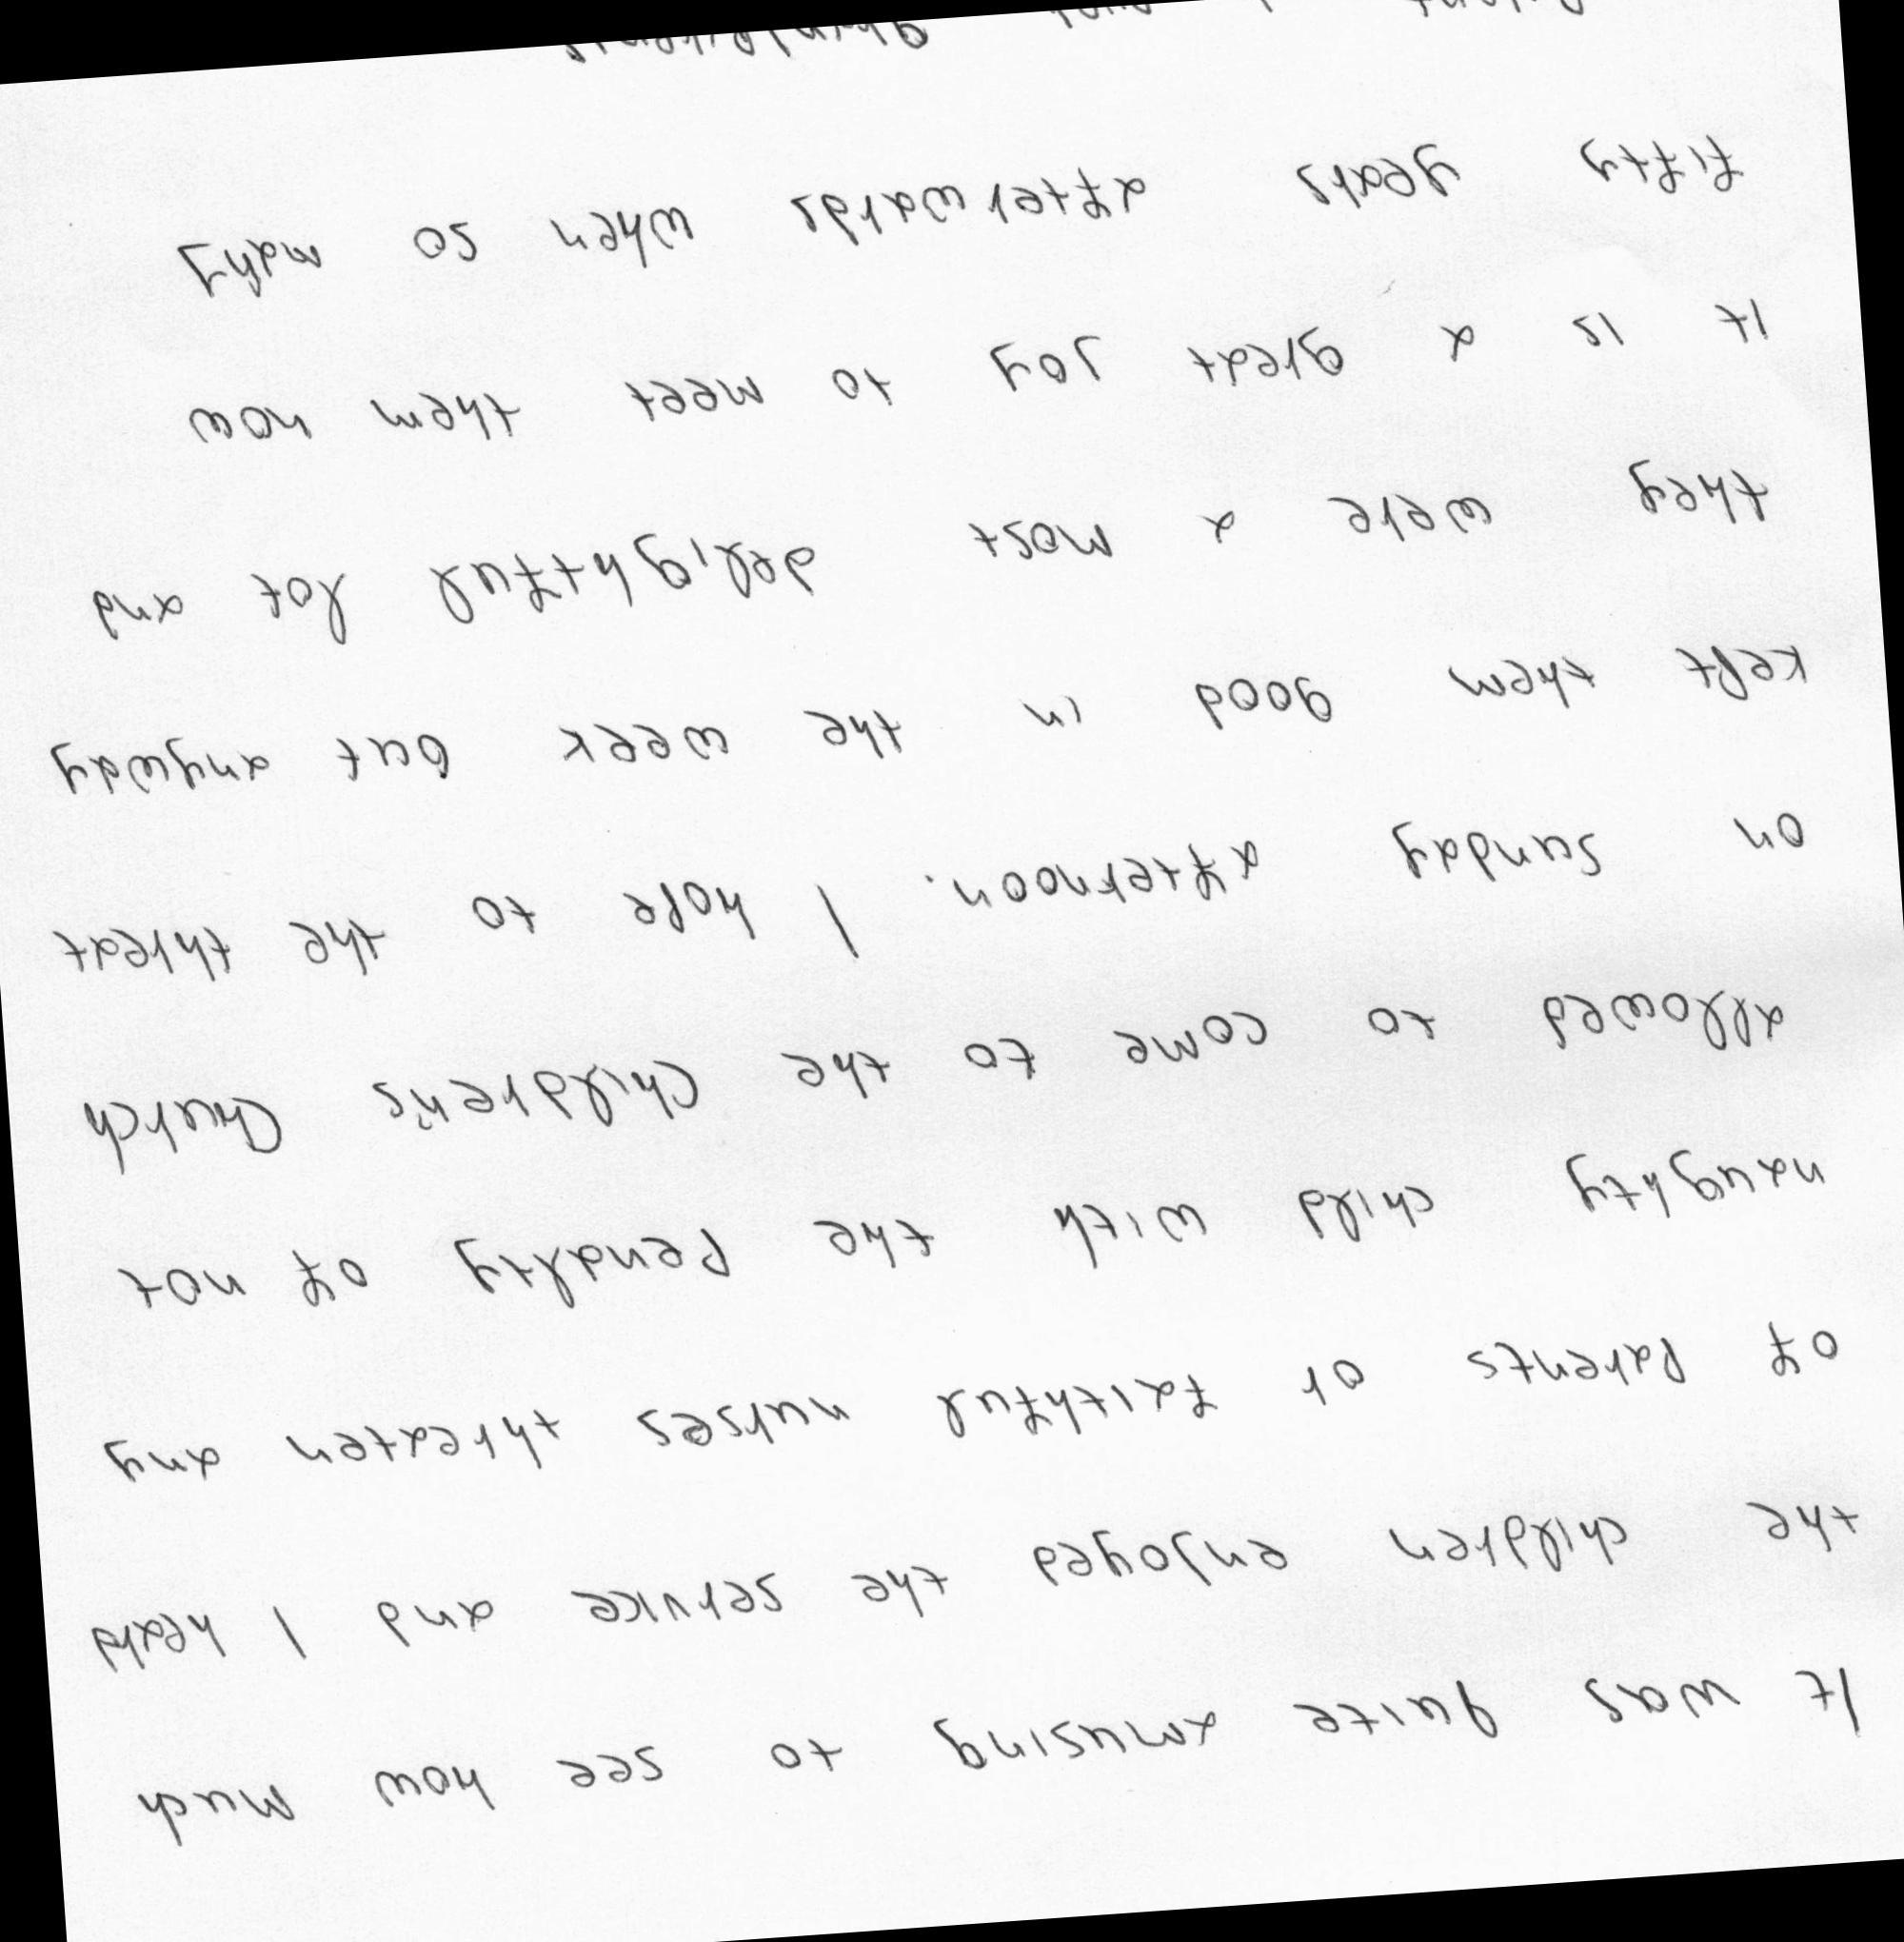 It was quite amusing to see how much
the children enjoyed the service and I heard
of parents or faithful nurses threaten any
naughty child with the penalty of not
allowed to come to the Children's Church
on sunday afternoon. I hope to the threat
kept them good in the week but anyway
they were a most delightful lot and
it is a great joy to meet them now
fifty years afterwards when so many